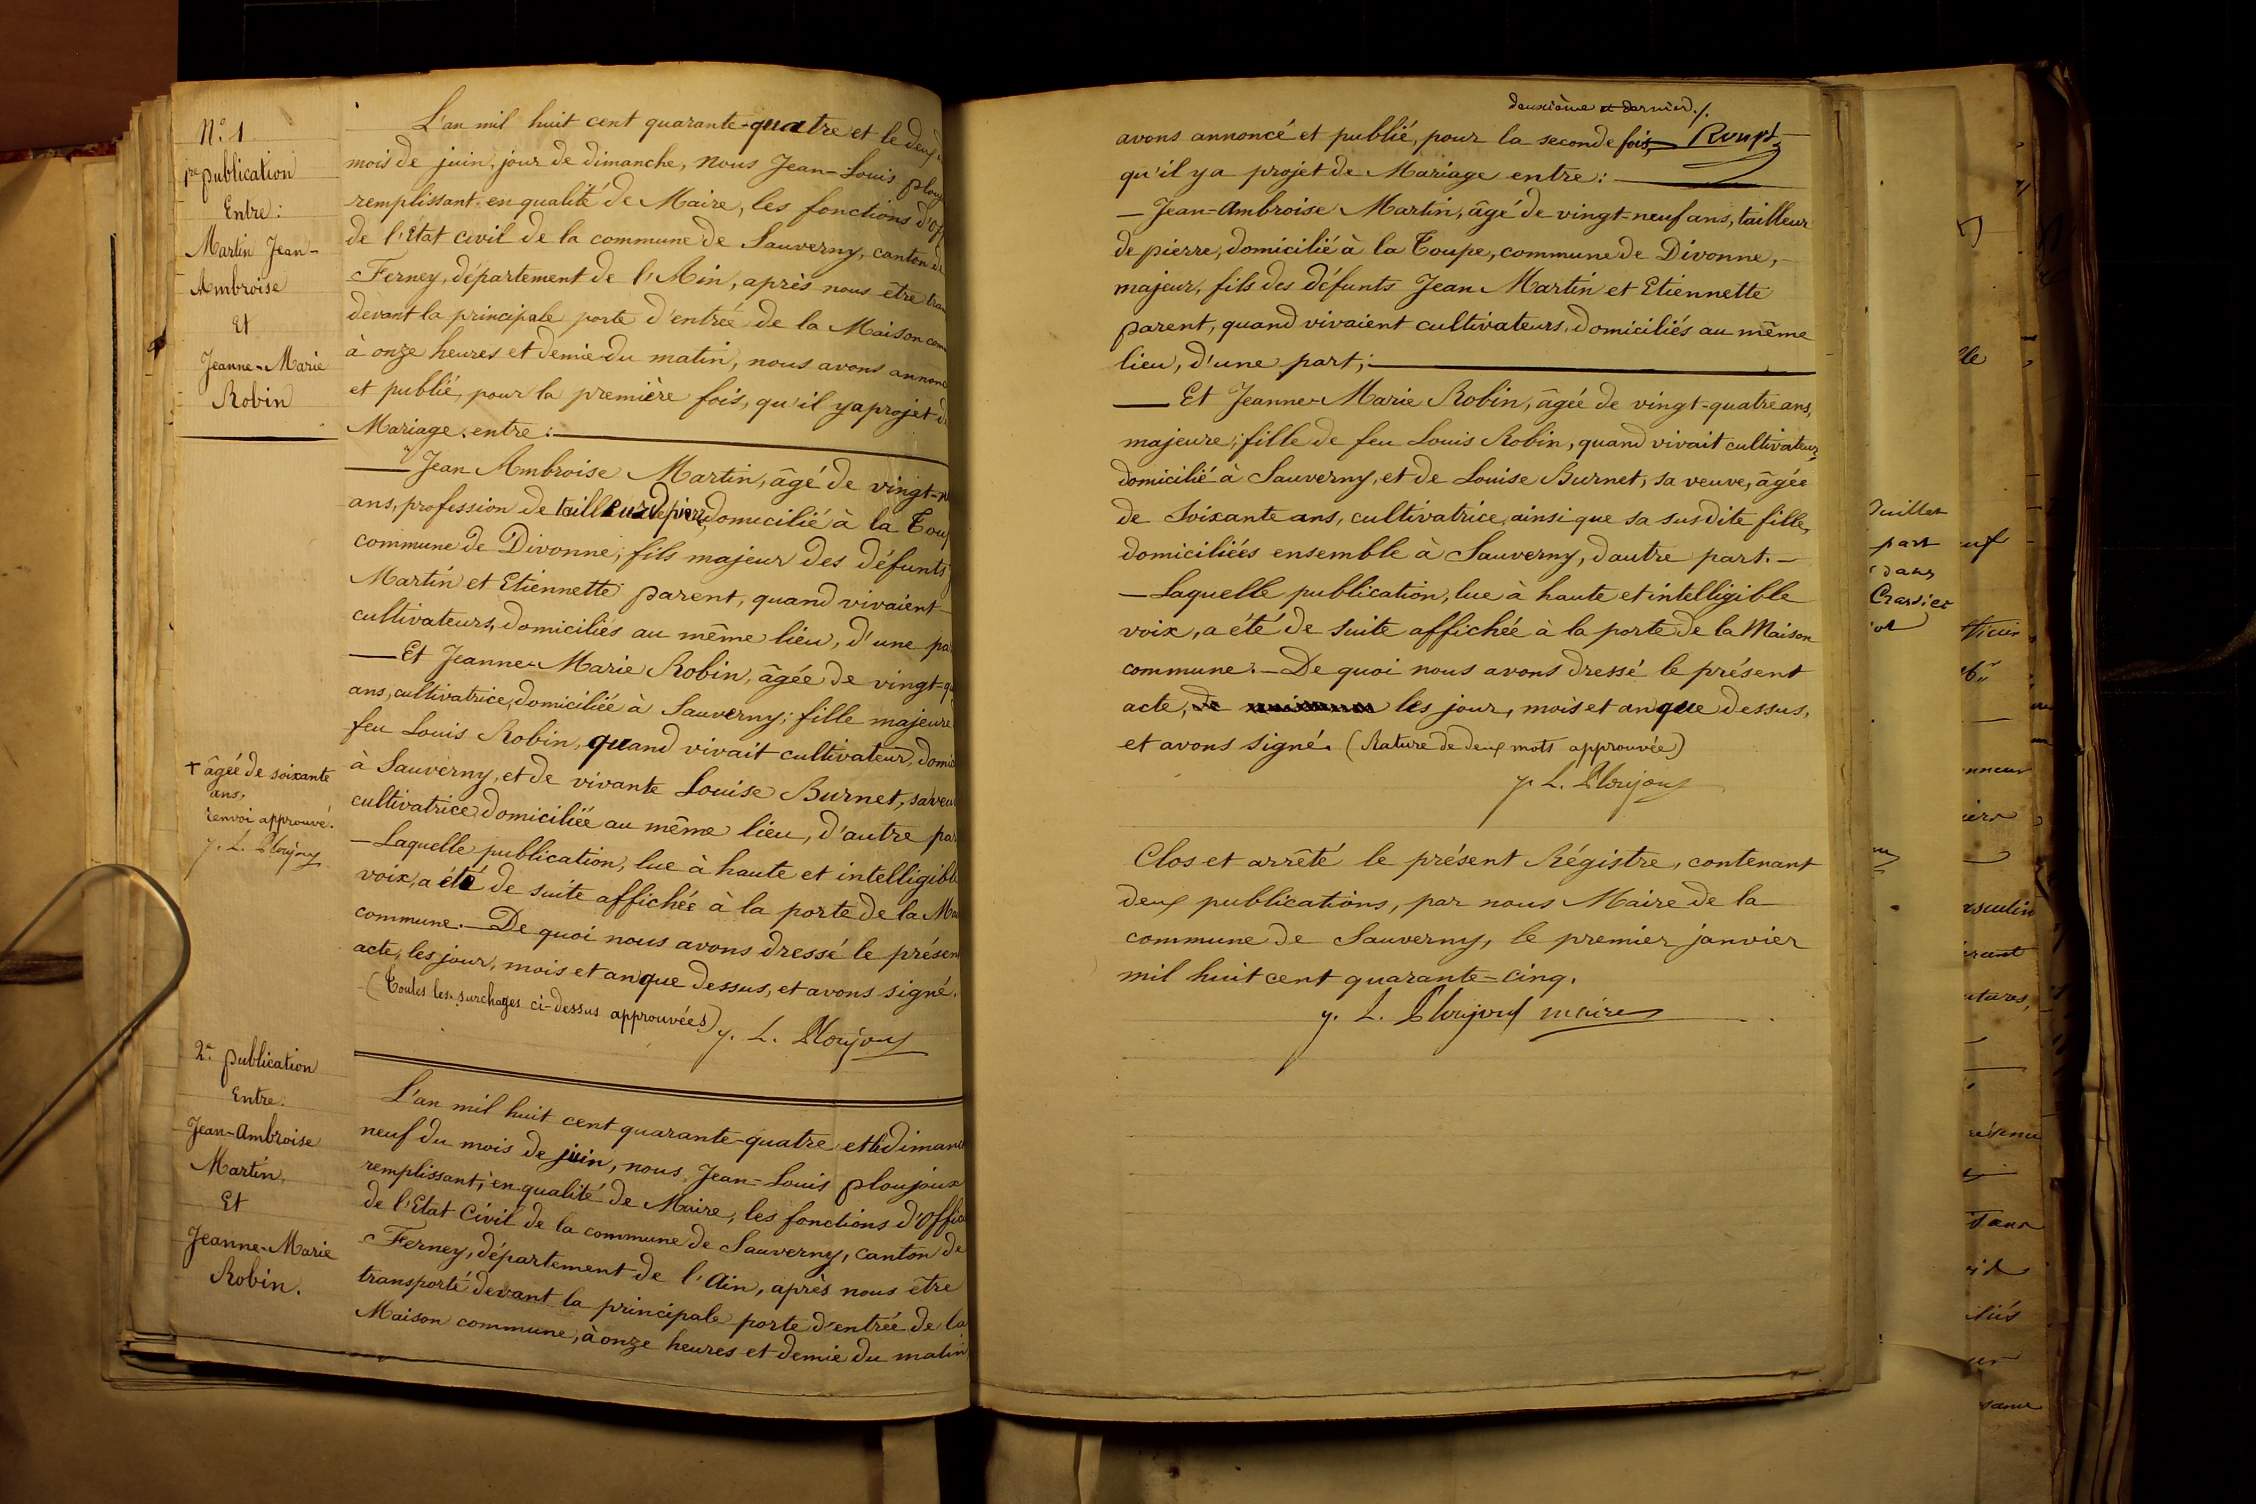 N.° 1
1re publication
Entre:
Martin Jean-
Ambroise
Et
Jeanne-Marie
Robin
L'an mil huit cent quarante-quatre et le deux
mois de juin, jour de dimanche, nous Jean-Louis plouj
remplissant en qualité de Maire, les fonctions d'of
de l'Etat civil de la commune de Sauverny, canton de
Ferney, département de l'Ain, après nous être tran
devant la principale porte d'entrée de la Maison com
à onze heures et demie du matin, nous avons annonc
et publié, pour la première fois, qu'il y a projet de
Mariage entre:
Jean Ambroise Martin, âgé de vingt-n
ans, profession de tailleur de pierre, domicilié à la Toup
commune de Divonne, fils majeur des défunts
Martin et Etiennette parent, quand vivaient
cultivateurs, domiciliés au même lieu, d'une pa
Et Jeanne-Marie Robin, âgée de vingt-qu
ans, cultivatrice, domiciliée à Sauverny; fille majeure
feu Louis Robin, quand vivait cultivateur, domic
à Sauverny, et de vivante Louise Burnet, sa veu
cultivatrice, domiciliée au même lieu, d'autre pa
— Laquelle publication, lue à haute et intelligible
voix, a été de suite affichée à la porte de la Mai
commune. — De quoi nous avons dressé le présen
acte, les jour, mois et an que dessus, et avons signé.
(Toutes les surchages ci-dessus approuvées) J. L. Ploujoux
+ âgée de soixante
ans,
renvoi approuvé.
J. L. Ploujoux
2e publication
Entre:
Jean-Ambroise
Martin,
Et
Jeanne-Marie
Robin.
L'an mil huit cent quarante-quatre et le dimanc
neuf du mois de juin, nous Jean-Louis ploujoux
remplissant, en qualité de Maire, les fonctions d'offic
de l'Etat Civil de la commune de Sauverny, canton de
Ferney, département de l'Ain, après nous être
transporté devant la principale porte d'entrée de la
Maison commune, à onze heures et demie du matin
deuxième et dernier./.
avons annoncé et publié, pour la seconde fois,
qu'il y a projet de Mariage entre:
— Jean-Ambroise Martin, âgé de vingt-neuf ans, tailleur
de pierre, domicilié à la Toupe, commune de Divonne,
majeur, fils des défunts Jean Martin et Etiennette
parent, quand vivaient cultivateurs, domiciliés au même
lieu, d'une part;
— Et Jeanne-Marie Robin, âgée de vingt-quatre ans,
majeure; fille de feu Louis Robin, quand vivait cultivateur,
domicilié à Sauverny, et de Louise Burnet, sa veuve, âgée
de Soixante ans, cultivatrice, ainsi que sa susdite fille,
domiciliées ensemble à Sauverny, d'autre part. —
— Laquelle publication, lue à haute et intelligible
voix, a été de suite affichée à la porte de la Maison
commune. — De quoi nous avons dressé le présent
acte, les jour, mois et an que dessus,
et avons signé. (Rature de deux mots approuvée)
J. L. Ploujoux
Clos et arrêté le présent Régistre, contenant
deux publications, par nous Maire de la
commune de Sauverny, le premier janvier
mil huit cent quarante-cinq.
J. L. Ploujoux maire
Juillet
part
dans
Crassier